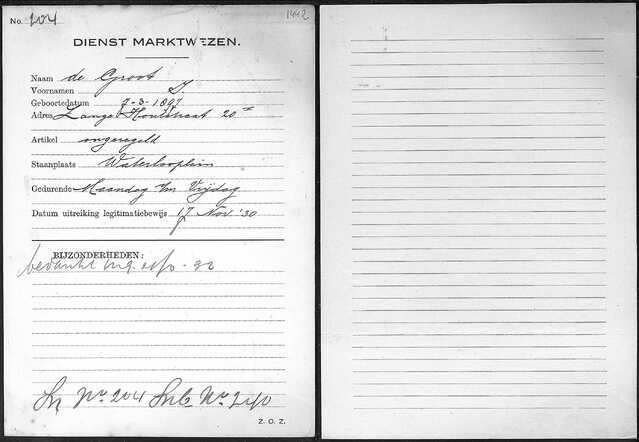 No. 204
1442
DIENST MARKTWEZEN.
Naam de Groot
Voornamen J.
Geboortedatum 7-3-1897
Adres Lange Houtstraat 20
Artikel ongeregeld
Staanplaats Waterlooplein
Gedurende Maandag t/m Vrijdag
Datum uitreiking legitimatiebewijs 17 Nov '30
BIJZONDERHEDEN:
bedankt
No. 204 No. 240
Z. O. Z.